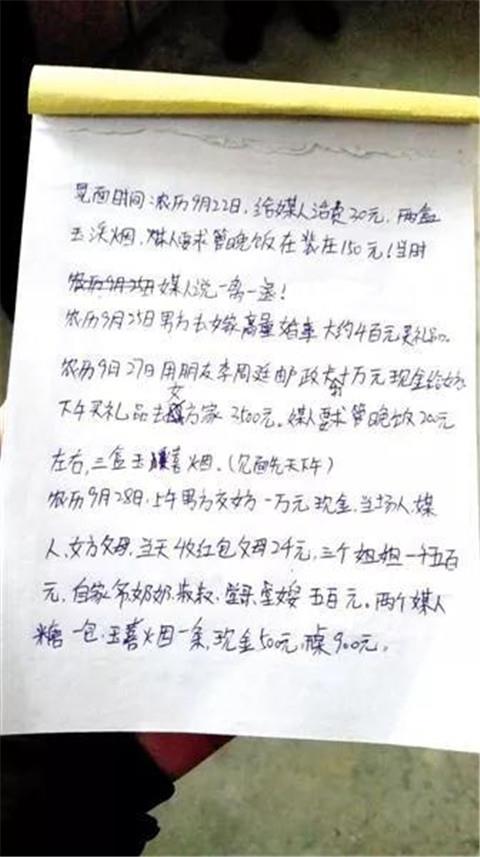 见面时间:农历9月22日,给媒人话费30元,两盒
玉溪烟,媒人要求管晚饭在装在150元!当时
农历9月25日媒人说一离一妻!
农历9月25日男方去女家商量婚事大约4百元买礼品。
农历9月27日用朋友李周延邮政卡十万元现金给女方
下午买礼品去女方家3500元。媒人要求管晚饭200元
左右,三盒玉喜烟.(见面先天下午)
农历9月28日.上午男方交女方一万元现金,当场人,媒
人,女方父母,当天收红包父母2千元,三个姐姐一千五百
元,自家爷奶奶,叔叔,堂哥,堂嫂五百元。两个媒人
糖一包,玉喜烟一条,现金500元,桌900元.